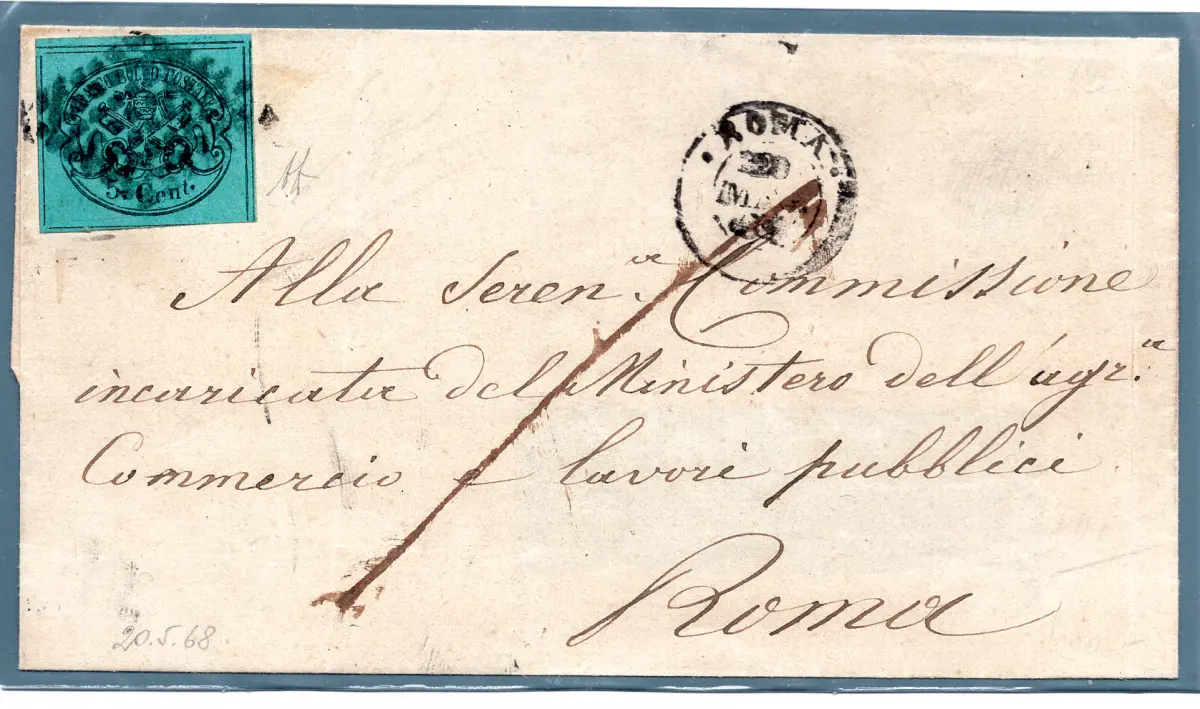 FRANCO BOLLO POSTALE
5 Cent.
ROMA
20
MAG
68
Alla Seren.ª Commissione
incaricata del Ministero dell'agr.ª
Commercio e lavori pubblici
Roma
20.5.68.